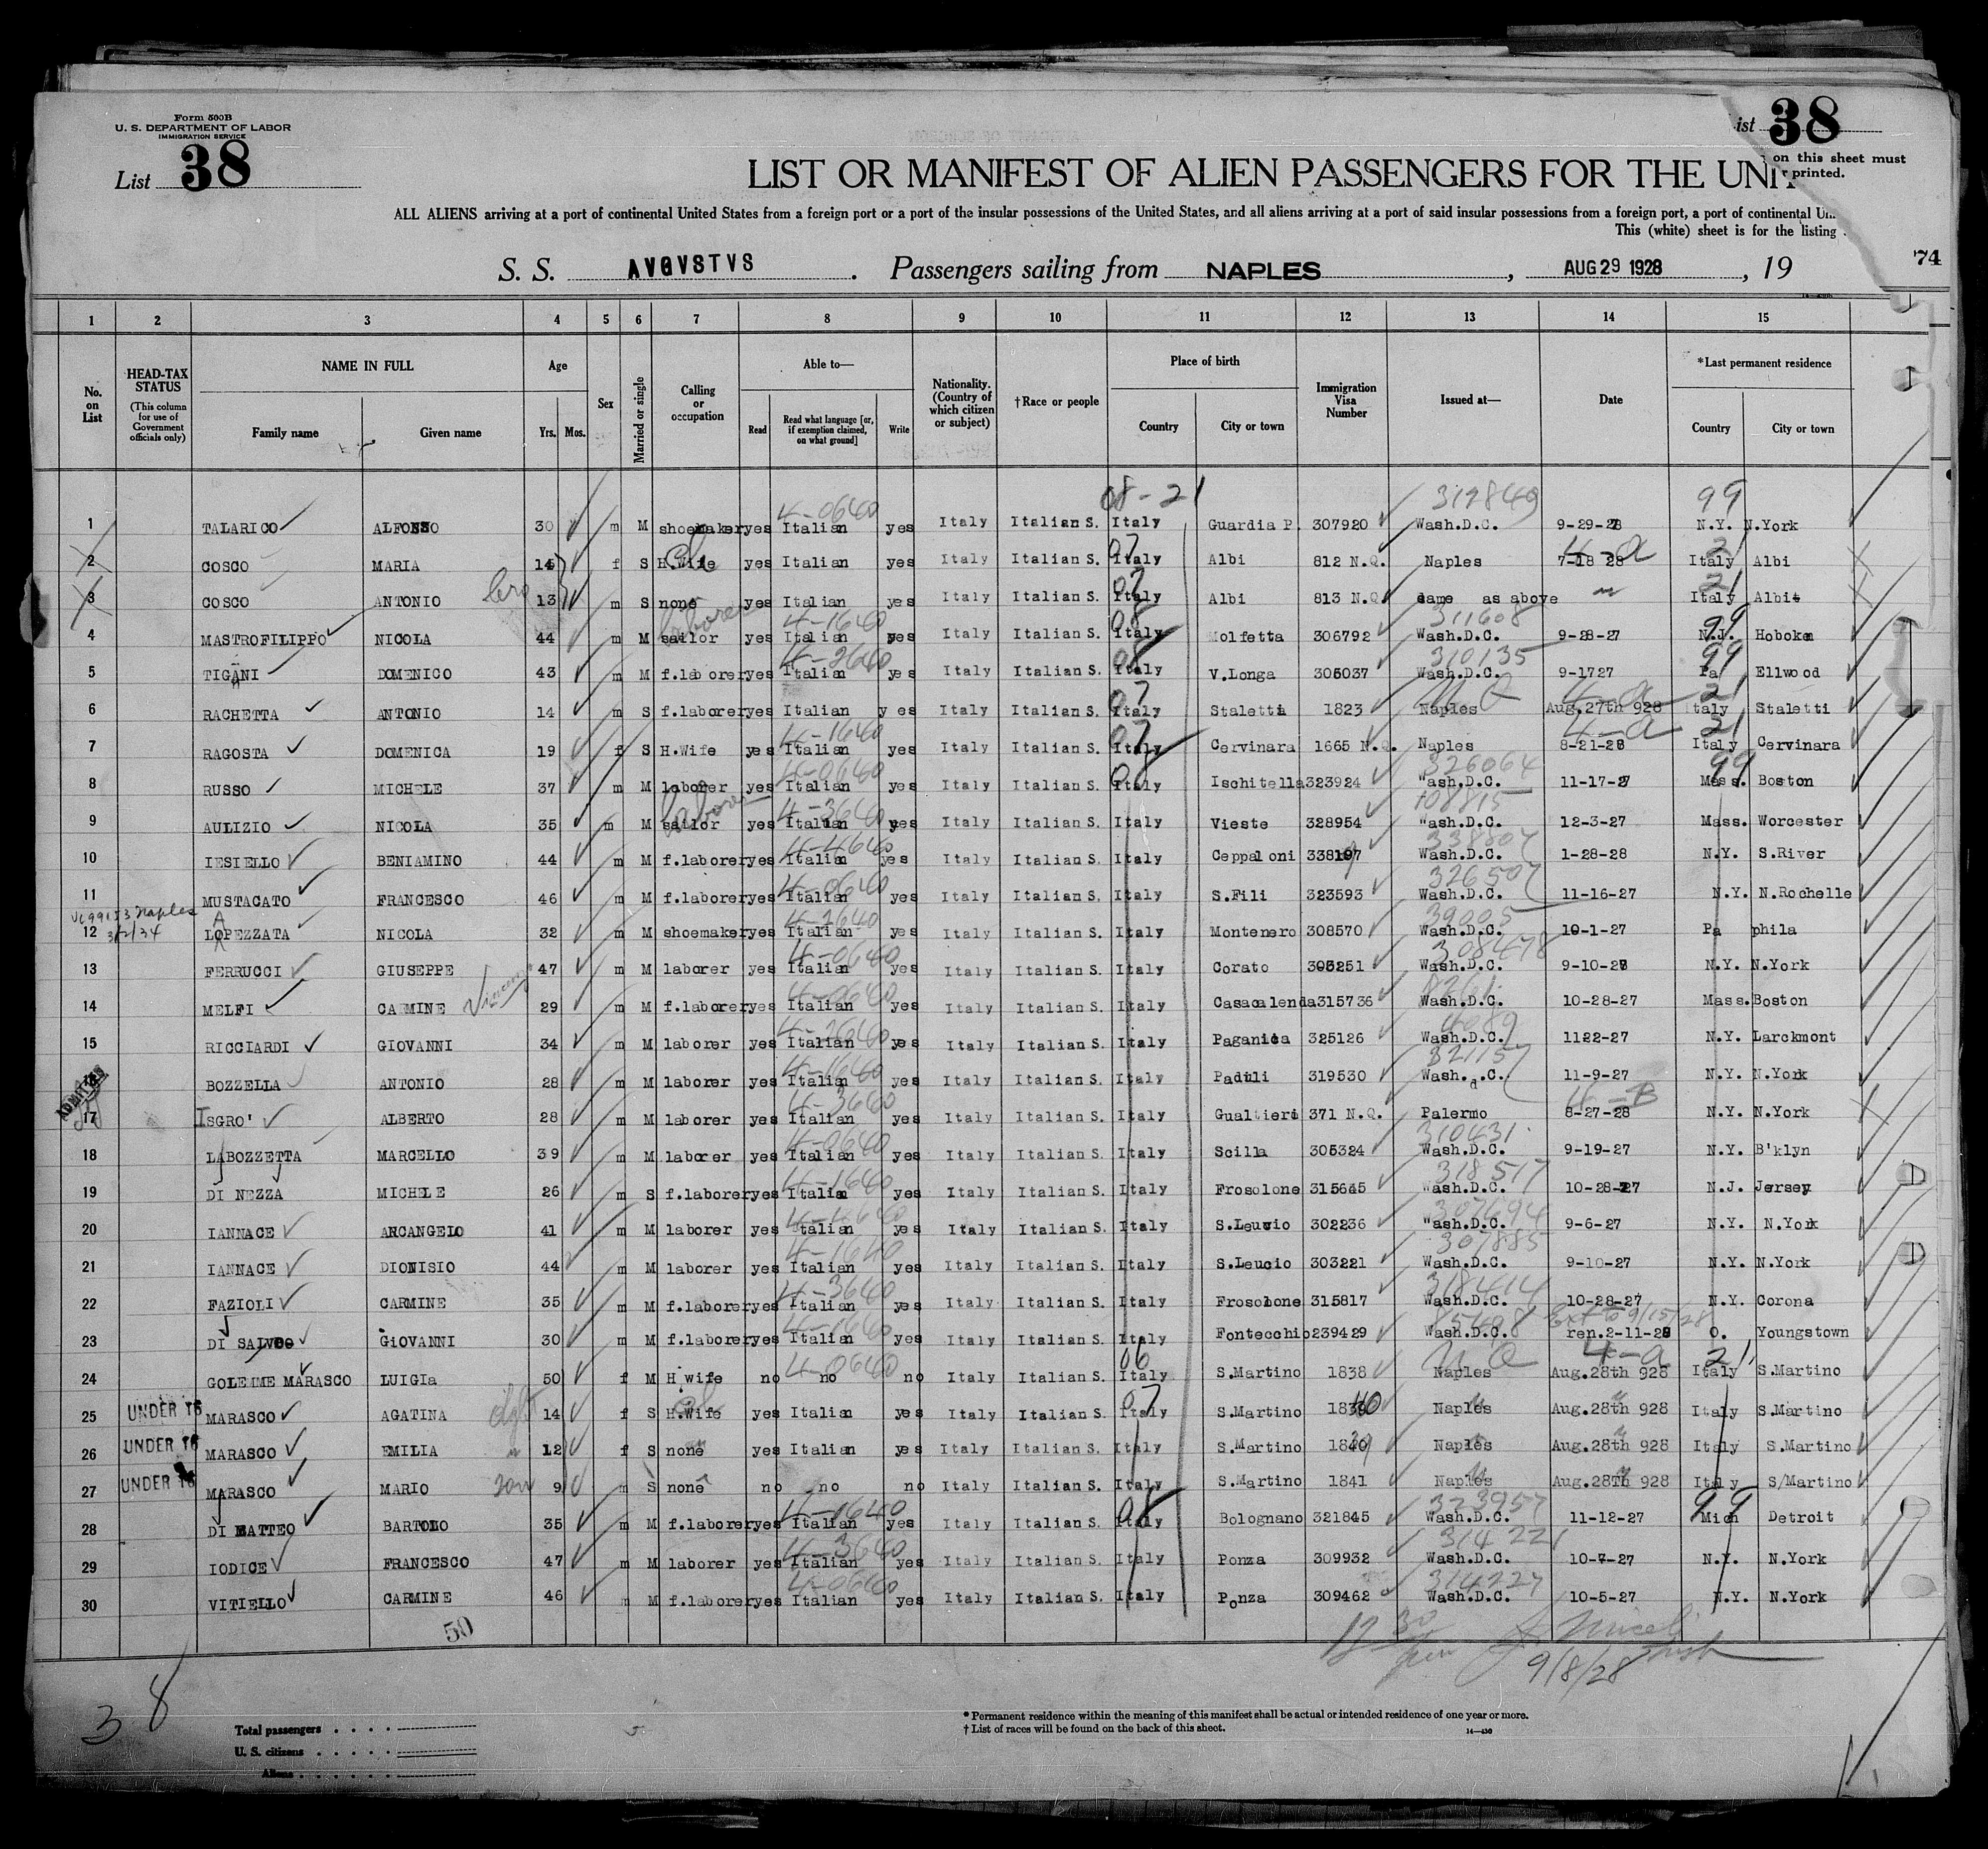 Form 500B
U. S. DEPARTMENT OF LABOR
IMMIGRATION SERVICE
List 38
ist 38
on this sheet must
printed.
LIST OR MANIFEST OF ALIEN PASSENGERS FOR THE UNI
ALL ALIENS arriving at a port of continental United States from a foreign port or a port of the insular possessions of the United States, and all aliens arriving at a port of said insular possessions from a foreign port, a port of continental
This (white) sheet is for the listing
S. S. AVGVSTVS . Passengers sailing from NAPLES , AUG 29 1928 , 19
74
1 2 3 4 5 6 7 8 9 10 11 12 13 14 15
No. on List
HEAD-TAX STATUS
(This column for use of Government officials only)
NAME IN FULL
Family name Given name
Age
Yrs. Mos.
Sex
Married or single
Calling or occupation
Able to—
Read
Read what language [or, if exemption claimed, on what ground]
Write
Nationality. (Country of which citizen or subject)
†Race or people
Place of birth
Country City or town
Immigration Visa Number
Issued at—
Date
*Last permanent residence
Country City or town
08-21 312849 99
4-0640
1 TALARICO ALFONSO 30 m M shoemaker yes Italian yes Italy Italian S. Italy Guardia P. 307920 Wash.D.C. 9-29-28 N.Y. N.York
2 COSCO MARIA 14 f S H.Wife yes Italian yes Italy Italian S. Italy Albi 812 N.Q. Naples 7-18 28 Italy Albi
3 COSCO ANTONIO bro 13 m S none yes Italian yes Italy Italian S. Italy Albi 813 N.Q. same as above Italy Albi
laborer 4-1640 311608 99
4 MASTROFILIPPO NICOLA 44 m M sailor yes Italian yes Italy Italian S. Italy Molfetta 306792 Wash.D.C. 9-28-27 N.J. Hoboken
4-2640 310135 99
5 TIGANI DOMENICO 43 m M f.laborer yes Italian yes Italy Italian S. Italy V.Longa 305037 Wash.D.C. 9-1727 Pa Ellwood
6 RACHETTA ANTONIO 14 m S f.laborer yes Italian yes Italy Italian S. Italy Staletti 1823 Naples Aug.27th 928 Italy Staletti
4-1640 4-a 21
7 RAGOSTA DOMENICA 19 f S H.Wife yes Italian yes Italy Italian S. Italy Cervinara 1665 N.Q. Naples 8-21-28 Italy Cervinara
4-0640 326064 99
8 RUSSO MICHELE 37 m M laborer yes Italian yes Italy Italian S. Italy Ischitella 323924 Wash.D.C. 11-17-27 Mass. Boston
laborer 4-3640 108815
9 AULIZIO NICOLA 35 m M sailor yes Italian yes Italy Italian S. Italy Vieste 328954 Wash.D.C. 12-3-27 Mass. Worcester
4-4640 338807
10 IESIELLO BENIAMINO 44 m M f.laborer yes Italian yes Italy Italian S. Italy Ceppaloni 338197 Wash.D.C. 1-28-28 N.Y. S.River
4-0640 326507
11 MUSTACATO FRANCESCO 46 m M f.laborer yes Italian yes Italy Italian S. Italy S.Fili 323593 Wash.D.C. 11-16-27 N.Y. N.Rochelle
Vc99153 Naples 3/2/34 4-2640 39005
12 LOPEZZATA NICOLA 32 m M shoemaker yes Italian yes Italy Italian S. Italy Montenero 308570 Wash.D.C. 10-1-27 Pa phila
4-0640 308478
13 FERRUCCI GIUSEPPE 47 m M laborer yes Italian yes Italy Italian S. Italy Corato 305251 Wash.D.C. 9-10-28 N.Y. N.York
4-0640
14 MELFI CARMINE Vincenzo 29 m M f.laborer yes Italian yes Italy Italian S. Italy Casacalenda 315736 Wash.D.C. 10-28-27 Mass. Boston
4-2640
15 RICCIARDI GIOVANNI 34 m M laborer yes Italian yes Italy Italian S. Italy Paganica 325126 Wash.D.C. 1122-27 N.Y. Larckmont
4-1640 321157
ADMITTED
BOZZELLA ANTONIO 28 m M laborer yes Italian yes Italy Italian S. Italy Paduli 319530 Wash.d.C. 11-9-27 N.Y. N.York
4-3640 4-B
17 ISGRO' ALBERTO 28 m M laborer yes Italian yes Italy Italian S. Italy Gualtieri 371 N.Q. Palermo 8-27-28 N.Y. N.York
4-0640 310431
18 LABOZZETTA MARCELLO 39 m M laborer yes Italian yes Italy Italian S. Italy Scilla 305324 Wash.D.C. 9-19-27 N.Y. B'klyn
4-1640 318517
19 DI NEZZA MICHELE 26 m S f.laborer yes Italian yes Italy Italian S. Italy Frosolone 315645 Wash.D.C. 10-28-27 N.J. Jersey
307694
20 IANNACE ARCANGELO 41 m M laborer yes Italian yes Italy Italian S. Italy S.Leucio 302236 Wash.D.C. 9-6-27 N.Y. N.York
4-1640 307885
21 IANNACE DIONISIO 44 m M laborer yes Italian yes Italy Italian S. Italy S.Leucio 303221 Wash.D.C. 9-10-27 N.Y. N.York
4-3640 318414
22 FAZIOLI CARMINE 35 m M f.laborer yes Italian yes Italy Italian S. Italy Frosolone 315817 Wash.D.C. 10-28-27 N.Y. Corona
4-1640 Ext to 9/15/28
23 DI SALVO GIOVANNI 30 m M f.laborer yes Italian yes Italy Italian S. Italy Fontecchio 239429 Wash.D.C. ren.2-11-28 O. Youngstown
4-0640 06 4-a 21
24 GOLEIME MARASCO LUIGIa 50 f M H.wife no no no Italy Italian S. Italy S.Martino 1838 Naples Aug.28th 928 Italy S.Martino
25 UNDER 16 MARASCO AGATINA 14 f S H.Wife yes Italian yes Italy Italian S. Italy S.Martino 1840 Naples Aug.28th 928 Italy S.Martino
26 UNDER 16 MARASCO EMILIA 12 f S none yes Italian yes Italy Italian S. Italy S.Martino 1839 Naples Aug.28th 928 Italy S.Martino
27 UNDER 16 MARASCO MARIO son 9 m S none no no no Italy Italian S. Italy S.Martino 1841 Naples Aug.28Th 928 Italy S/Martino
4-1640 323957 99
28 DI MATTEO BARTOLO 35 m M f.laborer yes Italian yes Italy Italian S. Italy Bolognano 321845 Wash.D.C. 11-12-27 Mich Detroit
4-3640 314221
29 IODICE FRANCESCO 47 m M laborer yes Italian yes Italy Italian S. Italy Ponza 309932 Wash.D.C. 10-7-27 N.Y. N.York
4-0640 314227
30 VITIELLO CARMINE 46 m M f.laborer yes Italian yes Italy Italian S. Italy Ponza 309462 Wash.D.C. 10-5-27 N.Y. N.York
50
12 30
9/8/28
38
Total passengers
U. S. citizens
Aliens
* Permanent residence within the meaning of this manifest shall be actual or intended residence of one year or more.
† List of races will be found on the back of this sheet.
14—430